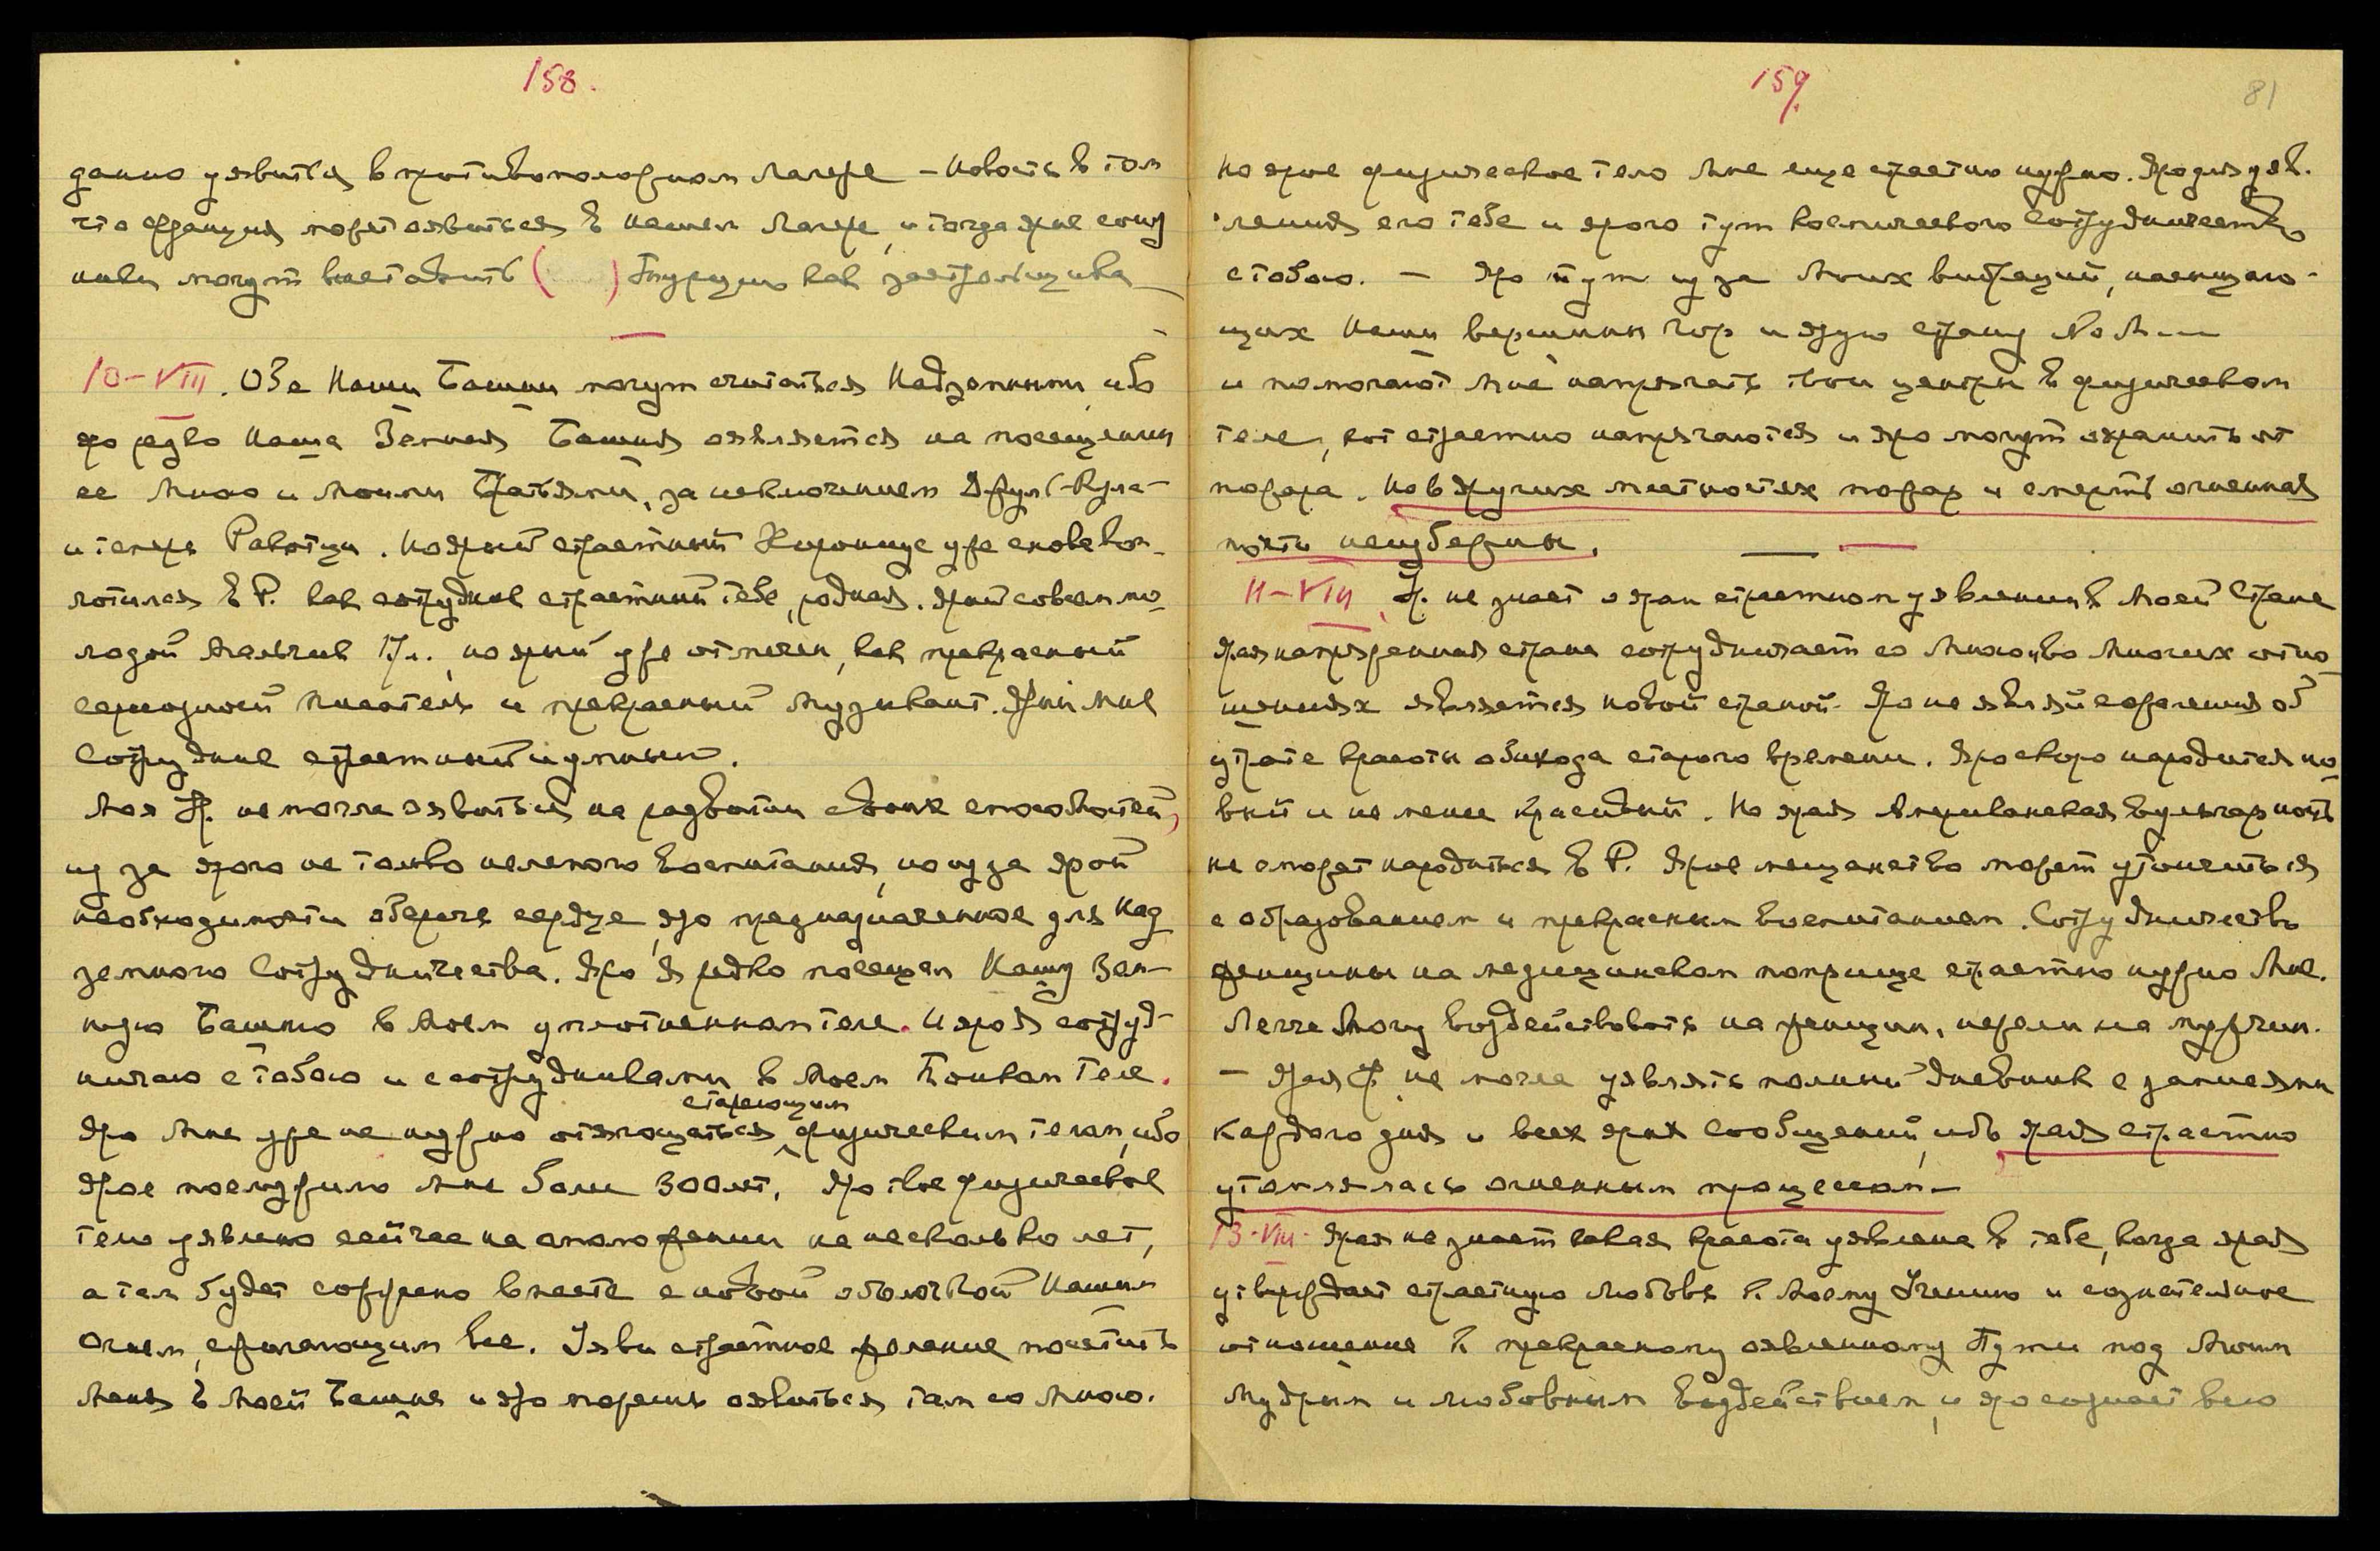 158.
данно уявиться в противоположном лагере – новость в том
что франция может оявиться в нашем лагере, и тогда ярые союз
ники могут выставить ( ) Турцию как застрельщика
10–VIII. Обе Наши Башни могут считаться Надземными, ибо
яро редко Наша Земная Башня оявляется на посещении
ее Мною и Моими Братьями, за исключением Джул-Кула-
и теперь Ракотци. Но ярый страстный уже снова вop-
лотился в Р. как сотрудник страстный тебе, родная. Ярый совсем мо-
лодой мальчик 17л., но ярый уже отмечен, как прекрасный
серьезный писатель и прекрасный музыкант. Ярый Мне
сотрудник страстный и умный.
Моя Н. не могла оявиться на развитии своих способностей,
из за ярого не только нелепого воспитания, но из за ярой
необходимости сберечь сердце, яро предназначенное для Над
земного Сотрудничества. Яро Я редко посещаю Нашу Зем-
ную Башню в Моем уплотненном теле. И яро Я сотруд-
ничаю с тобою и с сотрудниками в Моем Тонком Теле.
стареющим
Яро Мне уже не нужно отягощаться физическим телом, ибо
ярое послужило Мне более 300 лет. Яро твое физическое
тело уявлено сейчас на омоложении на несколько лет,
а там будет сожжено вместе с новой оболочкой Нашим
Огнем, сжигающим все. Уяви страстное желание посетить
Меня в Моей Башне и яро можешь оявиться там со Мною.
159.
81
Но ярое физическое тело Мне еще страстно нужно. Яро для уяв-
ления его тебе и ярого тут космического сотрудничества
с тобою. – Яро тут из за Моих вибраций, насыщаю-
щих Наши вершины гор и ярую страну
и помогают Мне напрягать твои центры в физическом
теле, кот страстно напрягаются и яро могут охранить от
пожара. Но в других местностях пожар и смерть огненная
почти неизбежны.
11–VIII. Н. не знает о яром страстном уявлении в Моей Стране
Ярая напряженная страна сотрудничает со Мною, во многих отно-
шениях является новой страной. Яро не являй сожаления об
утрате красоты обихода старого времени. Яро скоро народится но-
вый и не менее красивый. Но ярая Американская вульгарность
не сможет народиться в Р. Ярое мещанство может утончиться
с образованием и прекрасным воспитанием. Сотрудничество
женщины на медицинском поприще страстно нужно Мне.
Легче Могу воздействовать на женщин, нежели на мужчин.
– Ярая Н. не могла уявлять полный дневник с записями
каждого дня и всех ярых сообщений, ибо ярая страстно
утомлялась огненным процессом –
13–VIII. Ярая не знает какая красота уявлена в тебе, когда ярая
утверждает страстную любовь к Моему Учению и сознательное
отношение к прекрасному оявленному Пути под Моим
мудрым и любовным воздействием, и яро сознает всю